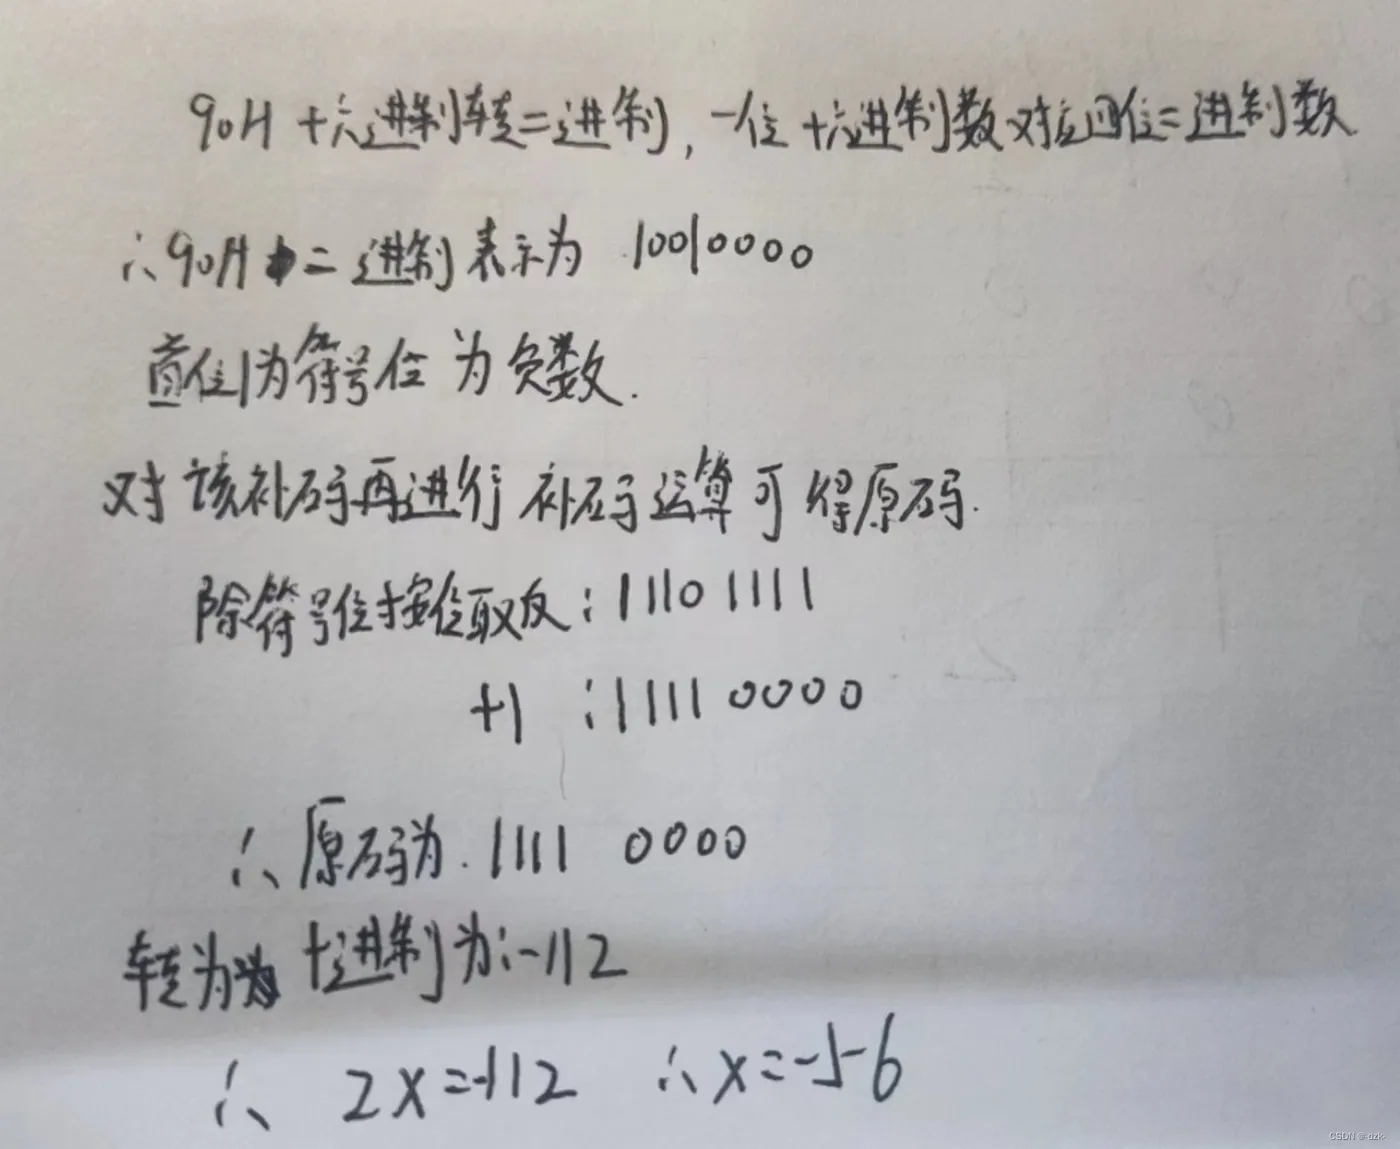 90H 十六进制转二进制，一位十六进制数对应四位二进制数
∴90H 二进制表示为 10010000
首位1为符号位 为负数.
对该补码再进行补码运算可得原码.
除符号位按位取反:1110 1111
+1 :1111 0000
∴原码为.1111 0000
转为 十进制为:-112
∴ 2X=-112 ∴X=-56
CSDN @-dzk-